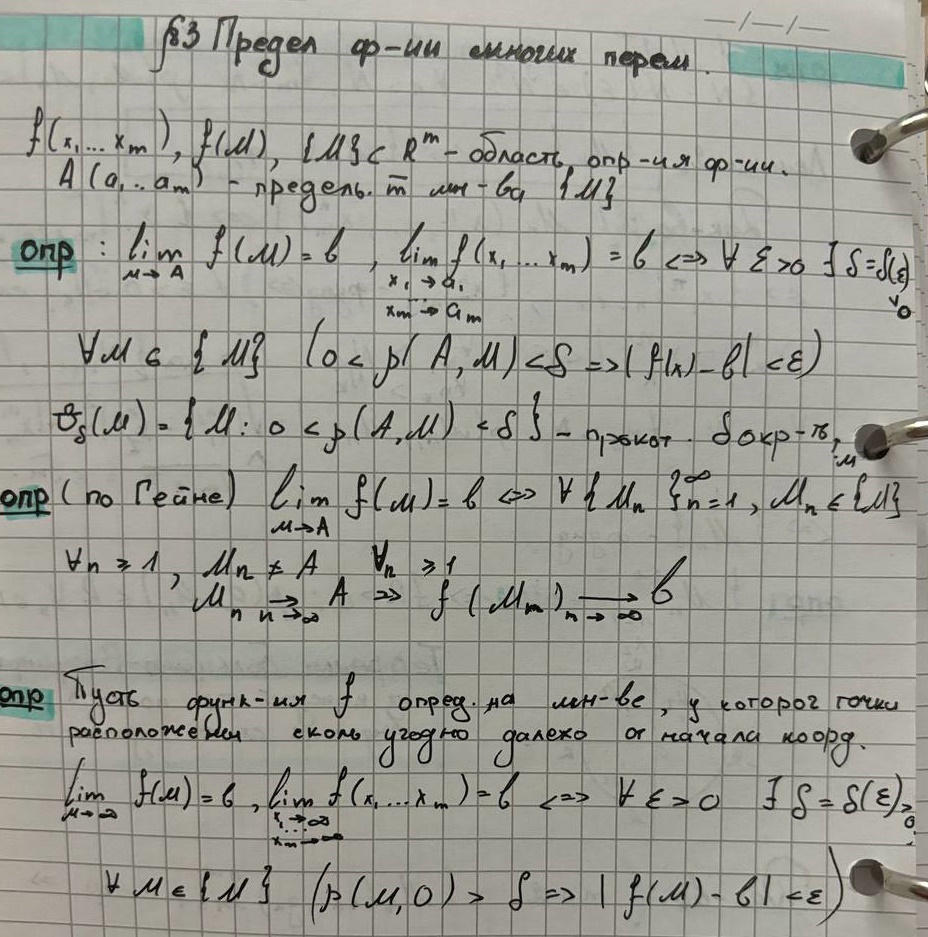 §3 Предел ф-ии многих перем.
f(x₁...xₘ), f(M), {M} ⊂ Rᵐ - область опр-ия ф-ии.
A(a₁..aₘ) - предель. т̅ мн-ва {M}
опр: lim f(M) = b, lim f(x₁...xₘ) = b <=> ∀ ε>0 ∃ δ=δ(ε)
M→A x₁→a₁ >0
... xₘ→aₘ
∀M ∈ {M} (0 < ρ(A,M) < δ => |f(x)-b| < ε)
δ(M) = {M: 0 < ρ(A,M) < δ} - прокот. δ окр-ть,
M
опр (по Гейне) lim f(M) = b <=> ∀{Mₙ}ₙ₌₁^∞, Mₙ ∈ {M}
M→A
∀n ≥ 1, Mₙ ≠ A ∀n ≥ 1
Mₙ → A => f(Mₘ) → b
n→∞ n→∞
опр Пусть функ-ия f опред. на мн-ве, у которог точки
расположены сколь угодно далеко от начала коорд.
lim f(M) = b, lim f(x₁...xₘ) = b <=> ∀ ε>0 ∃ δ = δ(ε)>0
M→∞ x₁→∞
... xₘ→∞
∀ M ∈ {M} (ρ(M,O) > δ => |f(M)-b| < ε)